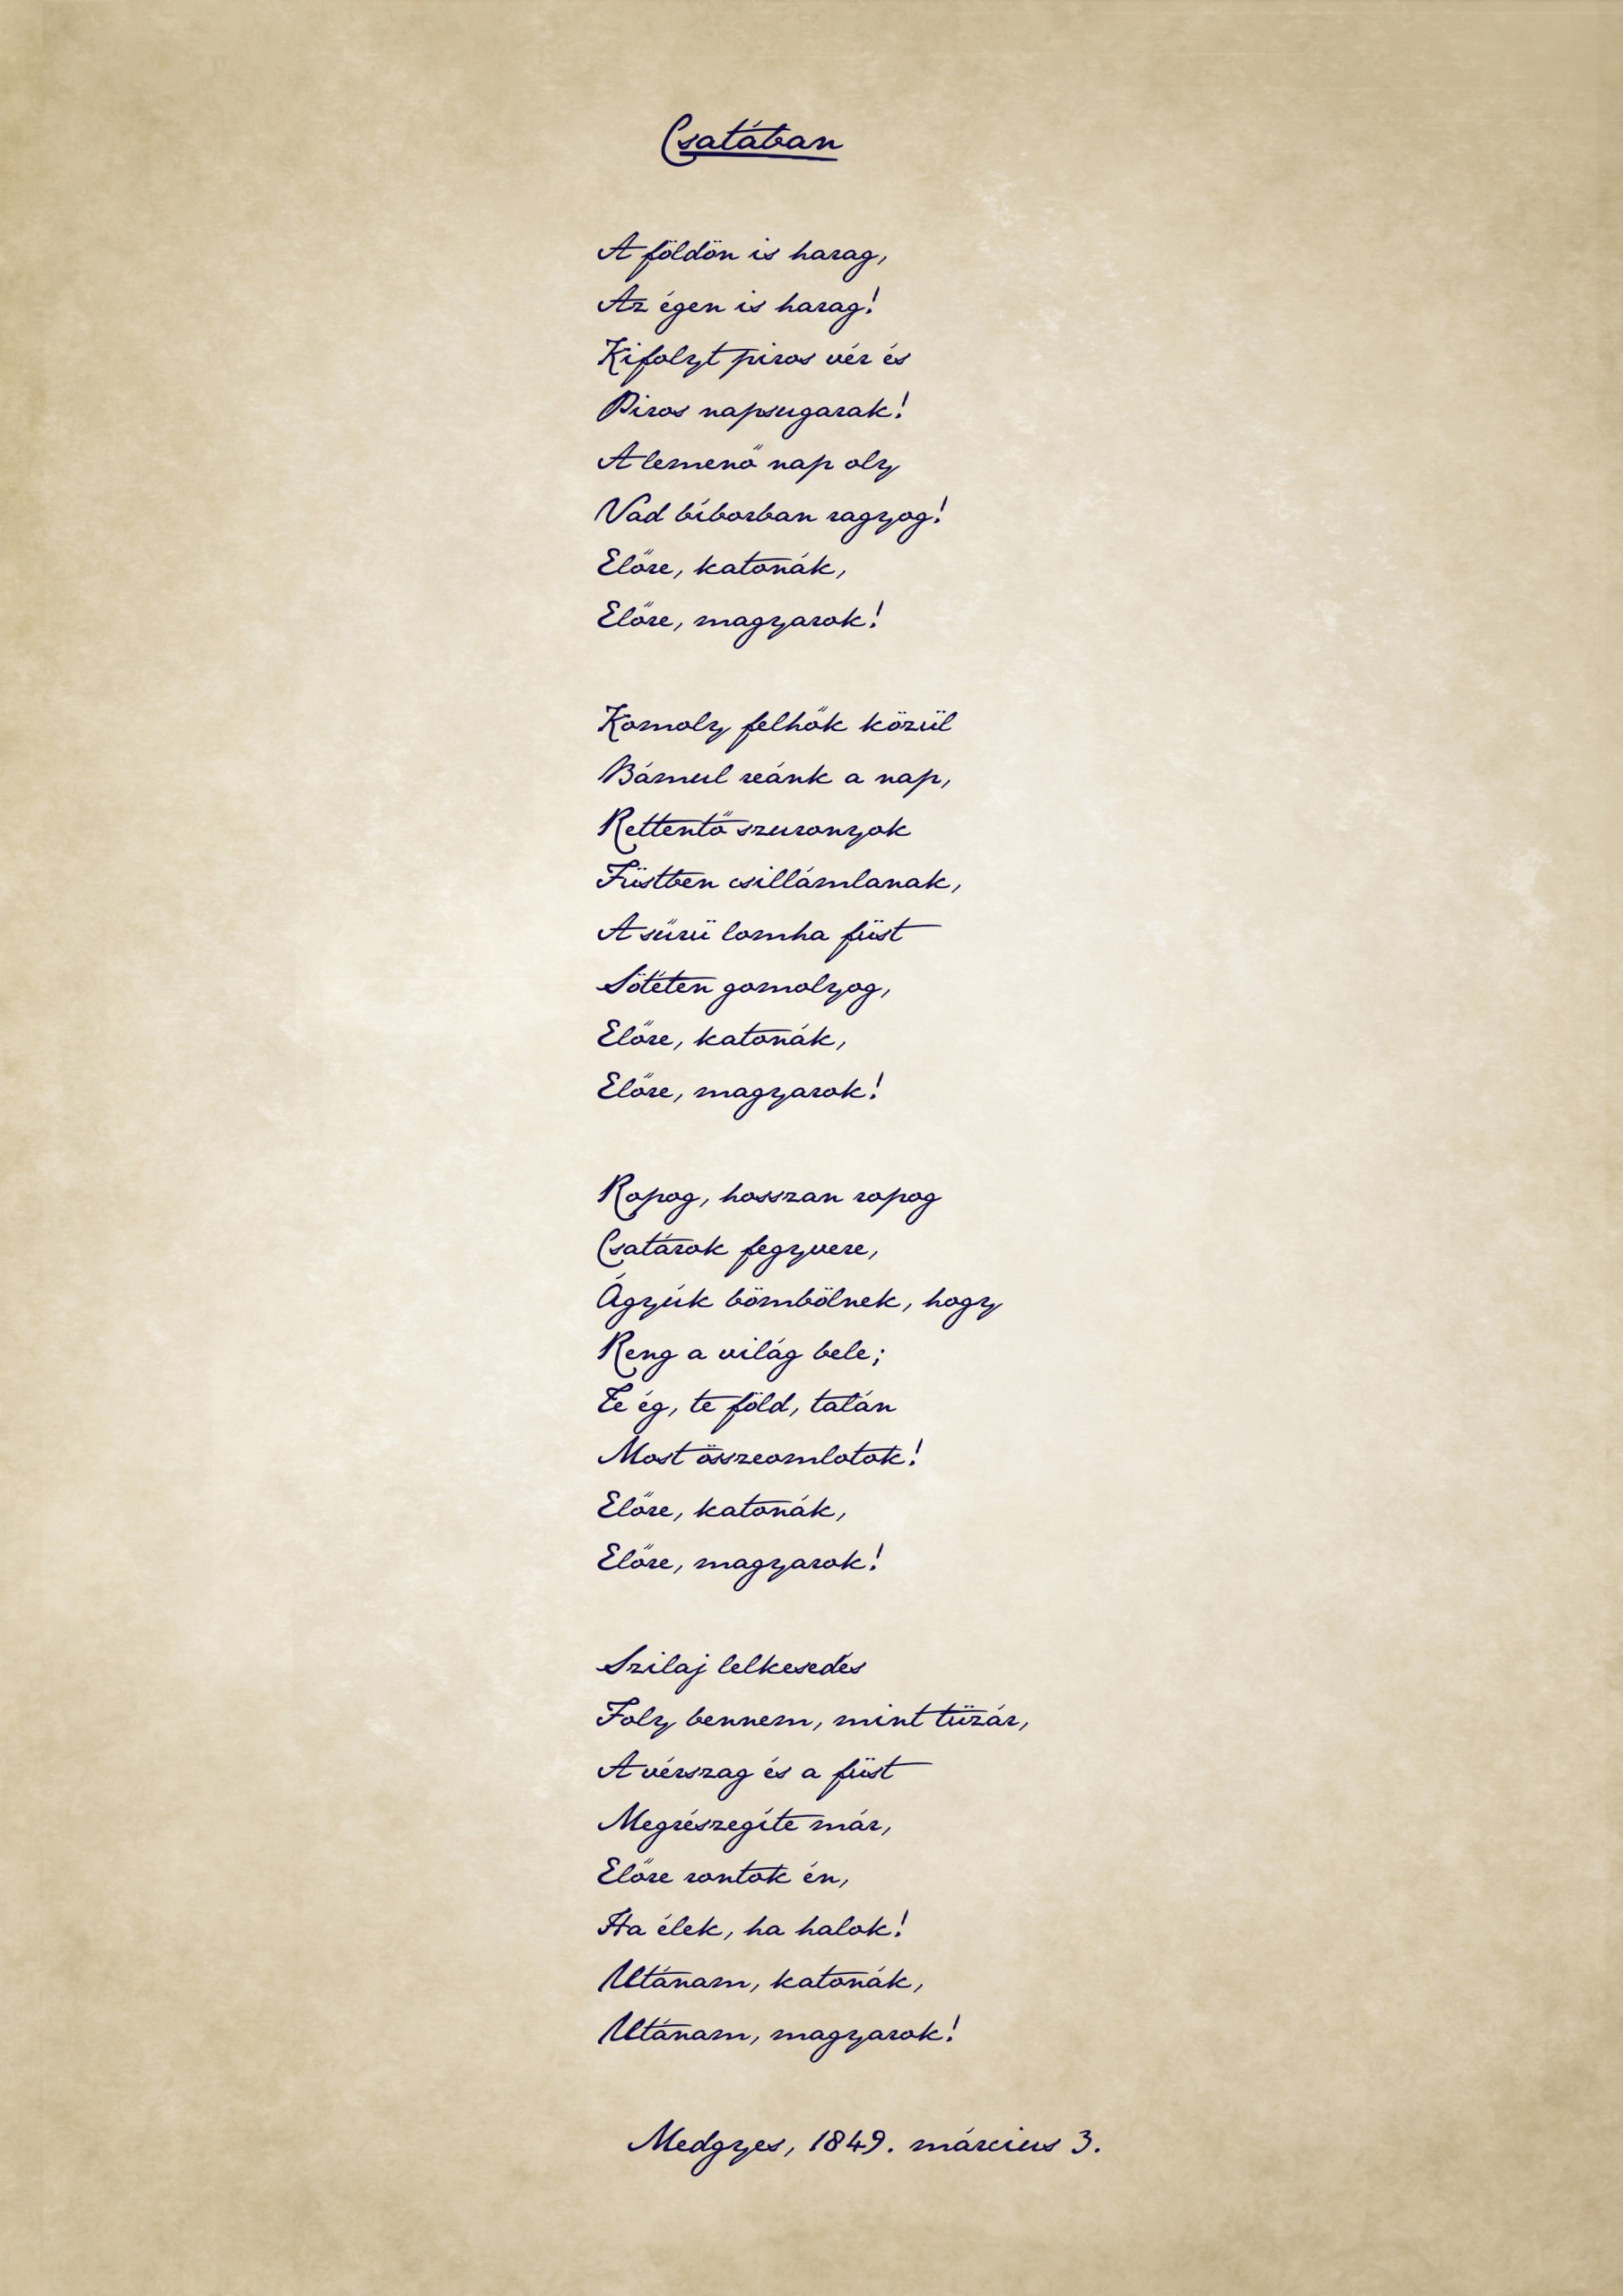 Csatában
A földön is harag,
Az égen is harag!
Kifolyt piros vér és
Piros napsugarak!
A lemenő nap oly
Vad bíborban ragyog!
Előre, katonák,
Előre, magyarok!
Komoly felhők közül
Bámul reánk a nap,
Rettentő szuronyok
Füstben csillámlanak,
A sűrü lomha füst
Sötéten gomolyog,
Előre, katonák,
Előre, magyarok!
Ropog, hosszan ropog
Csatárok fegyvere,
Ágyúk bömbölnek, hogy
Reng a világ bele;
Te ég, te föld, talán
Most összeomlotok!
Előre, katonák,
Előre, magyarok!
Szilaj lelkesedés
Foly bennem, mint tüzár,
A vérszag és a füst
Megrészegíte már,
Előre rontok én,
Ha élek, ha halok!
Utánam, katonák,
Utánam, magyarok!
Medgyes, 1849. március 3.